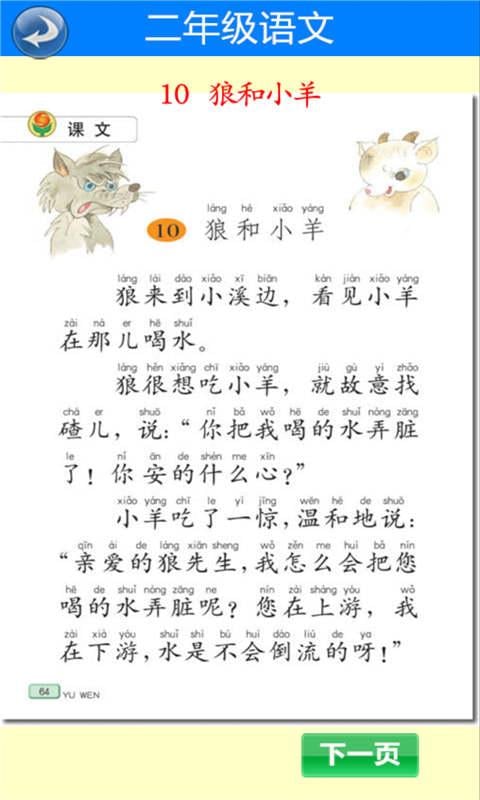 二年级语文
10 狼和小羊
课文
láng hé xiǎo yáng
10 狼和小羊
láng lái dào xiǎo xī biān kàn jiàn xiǎo yáng
狼来到小溪边，看见小羊
zài nà er hē shuǐ
在那儿喝水。
láng hěn xiǎng chī xiǎo yáng jiù gù yì zhǎo
狼很想吃小羊，就故意找
chá er shuō nǐ bǎ wǒ hē de shuǐ nóng zāng
碴儿，说：“你把我喝的水弄脏
le nǐ ān de shén me xīn
了！你安的什么心？”
xiǎo yáng chī le yì jīng wēn hé de shuō
小羊吃了一惊，温和地说：
qīn ài de láng xiān sheng wǒ zěn me huì bǎ nín
“亲爱的狼先生，我怎么会把您
hē de shuǐ nóng zāng ne nín zài shàng yóu wǒ
喝的水弄脏呢？您在上游，我
zài xià yóu shuǐ shì bú huì dào liú de ya
在下游，水是不会倒流的呀！”
64 YU WEN
下一页